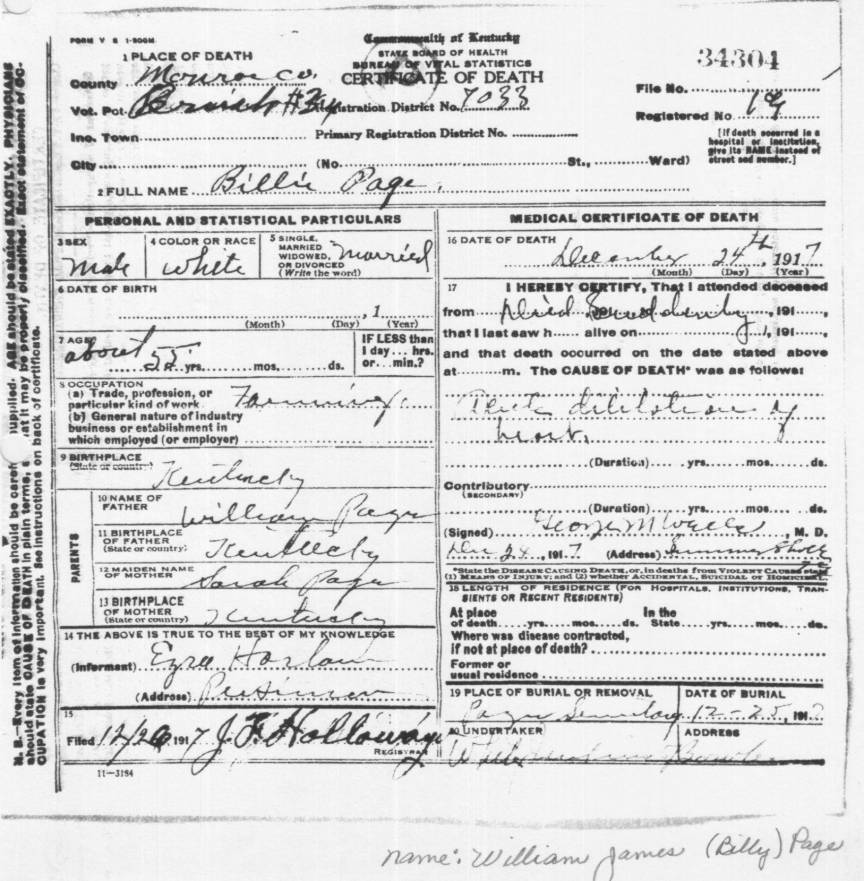 FORM V S 1-500M
Commonwealth of Kentucky
STATE BOARD OF HEALTH
BUREAU OF VITAL STATISTICS
CERTIFICATE OF DEATH
34304
1 PLACE OF DEATH
County Monroe Co.
Vot. Pct. #3 Registration District No. 7033
File No.
Registered No
Inc. Town Primary Registration District No.
[If death occurred in a hospital or institution, give its NAME instead of street and number.]
City (No. St., Ward)
2 FULL NAME Billie Page.
PERSONAL AND STATISTICAL PARTICULARS
3 SEX Male
4 COLOR OR RACE White
5 SINGLE, MARRIED WIDOWED, OR DIVORCED (Write the word) Married
6 DATE OF BIRTH
, 1
(Month) (Day) (Year)
7 AGE about 55 yrs. mos. ds.
IF LESS than 1 day... hrs. or... min.?
8 OCCUPATION
(a) Trade, profession, or particular kind of work Farming.
(b) General nature of industry business or establishment in which employed (or employer)
9 BIRTHPLACE
(State or country) Kentucky
PARENTS
10 NAME OF FATHER William Page
11 BIRTHPLACE OF FATHER (State or country) Kentucky
12 MAIDEN NAME OF MOTHER Sarah Page
13 BIRTHPLACE OF MOTHER (State or country) Kentucky
14 THE ABOVE IS TRUE TO THE BEST OF MY KNOWLEDGE
(Informant) Ezra Harlow
(Address) Persimmon
15
Filed 12/26 1917 J. F. Holloway
REGISTRAR
11-3184
MEDICAL CERTIFICATE OF DEATH
16 DATE OF DEATH
December 24th, 1917
(Month) (Day) (Year)
17 I HEREBY CERTIFY, That I attended deceased
from Died Suddenly, 191 ,
that I last saw h alive on , 191 ,
and that death occurred on the date stated above
at m. The CAUSE OF DEATH* was as follows:
dilitation of
heart.
(Duration) yrs. mos. ds.
Contributory
(SECONDARY)
(Duration) yrs. mos. ds.
(Signed) George M Wells, M. D.
Dec 24, 1917 (Address) Summer Shade
*State the DISEASE CAUSING DEATH, or, in deaths from VIOLENT CAUSES state
(1) MEANS OF INJURY; and (2) whether ACCIDENTAL, SUICIDAL OR HOMICIDAL.
18 LENGTH OF RESIDENCE (FOR HOSPITALS, INSTITUTIONS, TRANSIENTS OR RECENT RESIDENTS)
At place of death yrs. mos. ds. In the State yrs. mos. ds.
Where was disease contracted,
if not at place of death?
Former or
usual residence
19 PLACE OF BURIAL OR REMOVAL
Page
DATE OF BURIAL
12-25, 1917
20 UNDERTAKER
ADDRESS
N. B.—Every item of information should be carefully supplied. AGE should be stated EXACTLY. PHYSICIANS
should state CAUSE OF DEATH in plain terms, so that it may be properly classified. Exact statement of OCCUPATION is very important. See instructions on back of certificate.
name: William James (Billy) Page